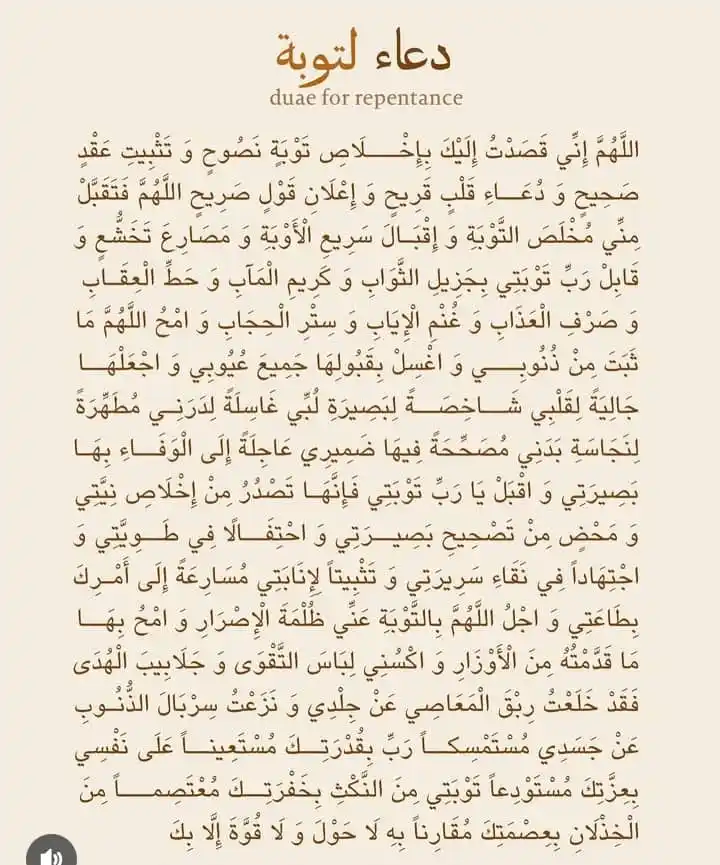 دعاء لتوبة
duae for repentance
اللَّهُمَّ إِنِّي قَصَدْتُ إِلَيْكَ بِإِخْـــلَاصِ تَوْبَةٍ نَصُوحٍ وَ تَثْبِيتِ عَقْدٍ
صَحِيحٍ وَ دُعَـــاءِ قَلْبٍ قَرِيحٍ وَ إِعْلَانِ قَوْلٍ صَرِيحٍ اللَّهُمَّ فَتَقَبَّلْ
مِنِّي مُخْلَصَ التَّوْبَةِ وَ إِقْبَـالَ سَرِيعِ الْأَوْبَةِ وَ مَصَارِعَ تَخَشُّعٍ وَ
قَابِلْ رَبِّ تَوْبَتِي بِجَزِيلِ الثَّوَابِ وَ كَرِيمِ الْمَآبِ وَ حَطِّ الْعِقَـابِ
وَ صَرْفِ الْعَذَابِ وَ غُنْمِ الْإِيَابِ وَ سِتْرِ الْحِجَابِ وَ امْحُ اللَّهُمَّ مَا
ثَبَتَ مِنْ ذُنُوبِـــي وَ اغْسِلْ بِقَبُولِهَا جَمِيعَ عُيُوبِي وَ اجْعَلْهَـــا
جَالِيَةً لِقَلْبِي شَـــاخِصَـــةً لِبَصِيرَةِ لُبِّي غَاسِلَةً لِدَرَنِـي مُطَهِّرَةً
لِنَجَاسَةِ بَدَنِي مُصَحِّحَةً فِيهَا ضَمِيرِي عَاجِلَةً إِلَى الْوَفَـــاءِ بِهَـا
بَصِيرَتِي وَ اقْبَلْ يَا رَبِّ تَوْبَتِي فَإِنَّهَـا تَصْدُرُ مِنْ إِخْلَاصِ نِيَّتِي
وَ مَحْضٍ مِنْ تَصْحِيحِ بَصِيـــرَتِي وَ احْتِفَـــالًا فِي طَـــوِيَّتِي وَ
اجْتِهَاداً فِي نَقَاءِ سَرِيرَتِي وَ تَثْبِيتاً لِإِنَابَتِي مُسَارِعَةً إِلَى أَمْـرِكَ
بِطَاعَتِي وَ اجْلُ اللَّهُمَّ بِالتَّوْبَةِ عَنِّي ظُلْمَةَ الْإِصْرَارِ وَ امْحُ بِهَـــا
مَا قَدَّمْتُهُ مِنَ الْأَوْزَارِ وَ اكْسُنِي لِبَاسَ التَّقْوَى وَ جَلَابِيبَ الْهُدَى
فَقَدْ خَلَعْتُ رِبْقَ الْمَعَاصِي عَنْ جِلْدِي وَ نَزَعْتُ سِرْبَالَ الذُّنُـوبِ
عَنْ جَسَدِي مُسْتَمْسِكـــاً رَبِّ بِقُدْرَتِـــكَ مُسْتَعِينـــاً عَلَى نَفْسِي
بِعِزَّتِكَ مُسْتَوْدِعاً تَوْبَتِي مِنَ النَّكْثِ بِخَفْرَتِـــكَ مُعْتَصِمـــاً مِنَ
الْخِذْلَانِ بِعِصْمَتِكَ مُقَارِناً بِهِ لَا حَوْلَ وَ لَا قُوَّةَ إِلَّا بِكَ